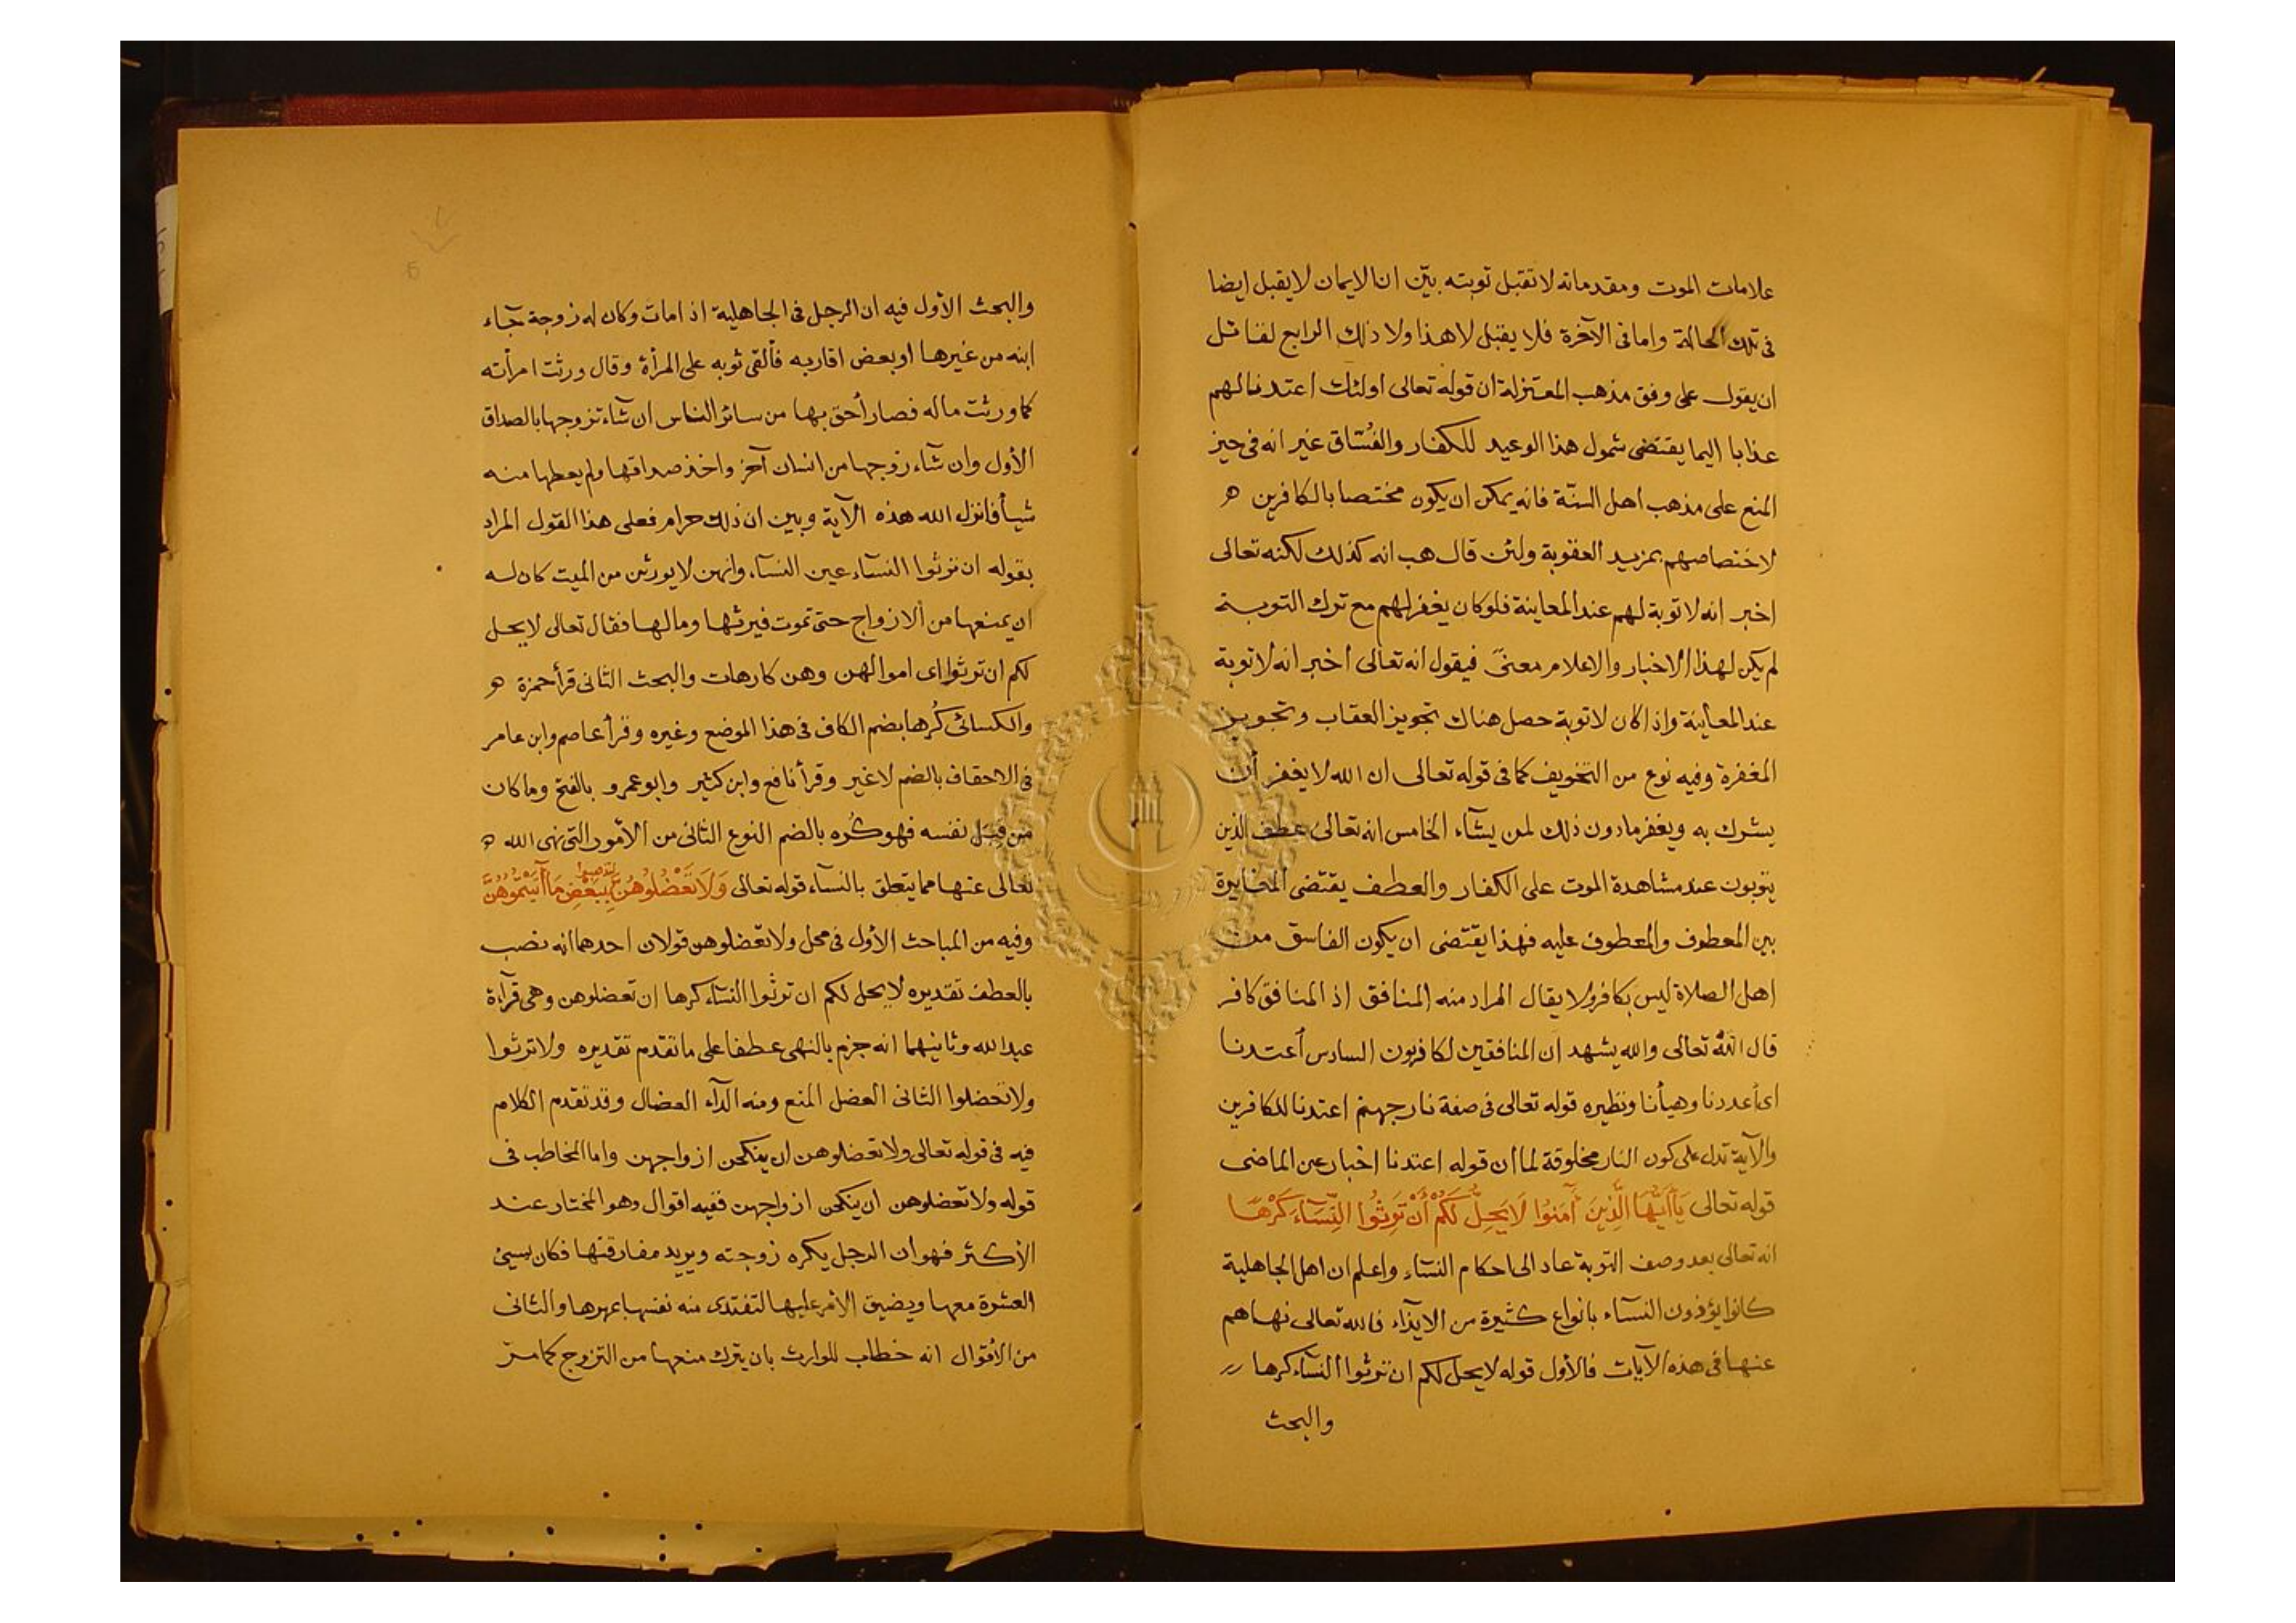 علامات الموت ومقدماته لا تقبل توبته بيّن ان الايمان لا يقبل ايضا
فى تلك الحالة واما فى الآخرة فلا يقبل لا هذا ولا ذلك الرابع لقائل
ان يقول على وفق مذهب المعتزلة ان قوله تعالى اولئك اعتدنا لهم
عذابا اليما يقتضى شمول هذا الوعيد للكفار والفُسّاق غير انه فى حيز
المنع على مذهب اهل السنّة فانه يمكن ان يكون مختصا بالكافرين
لاختصاصهم بمزيد العقوبة ولئن قال هب انه كذلك لكنه تعالى
اخبر انه لا توبة لهم عند المعاينة فلو كان يغفر لهم مع ترك التوبة
لم يكن لهذا الاخبار والاعلام معنىً فيقول انه تعالى اخبر انه لا توبة
عند المعاينة واذا كان لا توبة حصل هناك تجويز العقاب وتجويز
المغفرة وفيه نوع من التخويف كما فى قوله تعالى ان الله لا يغفر أن
يشرك به ويغفر مادون ذلك لمن يشآء الخامس انه تعالى عطف الذين
يتوبون عند مشاهدة الموت على الكفار والعطف يقتضى المغايرة
بين المعطوف والمعطوف عليه فهذا يقتضى ان يكون الفاسق من
اهل الصلاة ليس بكافر ولا يقال المراد منه المنافق اذ المنافق كافر
قال اللهُ تعالى والله يشهد ان المنافقين لكافرون السادس أعتدنا
اى أعددنا وهيأنا ونظيره قوله تعالى فى صفة نار جهنم اعتدنا للكافرين
والآية تدل على كون النار مخلوقة لما ان قوله اعتدنا اخبار عن الماضى
قوله تعالى يَآأَيُّهَا الَّذِينَ آمَنُوا لَا يَحِلُّ لَكُمْ أَنْ تَرِثُوا النِّسَآءَ كَرْهًا
انه تعالى بعد وصف التوبة عاد الى احكام النسآء واعلم ان اهل الجاهلية
كانوا يؤذون النسآء بانواع كثيرة من الايذآء فالله تعالى نهاهم
عنها فى هذه الآيات فالأول قوله لا يحل لكم ان ترثوا النسآء كرها
والبحث
والبحث الأول فيه ان الرجل فى الجاهلية اذا مات وكان له زوجة جآء
ابنه من غيرها او بعض اقاربه فألقى ثوبه على المرأة وقال ورثت امرأته
كما ورثت ماله فصار أحق بها من سائر الناس ان شآء تزوجها بالصداق
الأول وان شآء زوجها من انسان آخر واخذ صداقها ولم يعطها منه
شيأ فانزل الله هذه الآية وبين ان ذلك حرام فعلى هذا القول المراد
بقوله ان ترثوا النسآء عين النسآء وانهن لا يورثن من الميت كان له
ان يمنعها من الازواج حتى تموت فيرثها ومالها فقال تعالى لا يحل
لكم ان ترثوا اى اموالهن وهن كارهات والبحث الثانى قرأ حمزة
والكسائى كُرها بضم الكاف فى هذا الموضع وغيره وقرأ عاصم وابن عامر
فى الاحقاف بالضم لا غير وقرأ نافع وابن كثير وابو عمرو بالفتح وما كان
من قِبَل نفسه فهو كُره بالضم النوع الثانى من الأمور التى نهى الله
تعالى عنها مما يتعلق بالنسآء قوله تعالى وَلَا تَعْضُلُوهُنَّ لتذهبوا بِبَعْضِ مَا آتَيْتُمُوهُنَّ
وفيه من المباحث الأول فى محل ولا تعضلوهن قولان احدهما انه نصب
بالعطف تقديره لا يحل لكم ان ترثوا النسآء كرها ان تعضلوهن وهى قرآءة
عبد الله وثانيهما انه جزم بالنهى عطفا على ما تقدم تقديره ولا ترثوا
ولا تعضلوا الثانى العضل المنع ومنه الدآء العضال وقد تقدم الكلام
فيه فى قوله تعالى ولا تعضلوهن ان ينكحن ازواجهن واما المخاطب فى
قوله ولا تعضلوهن ان ينكحن ازواجهن ففيه اقوال وهو المختار عند
الأكثر فهو ان الرجل يكره زوجته ويريد مفارقتها فكان يسيئ
العشرة معها ويضيق الأمر عليها لتفتدى منه نفسها بمهرها والثانى
من الأقوال انه خطاب للوارث بان يترك منعها من التزوج كما مرّ